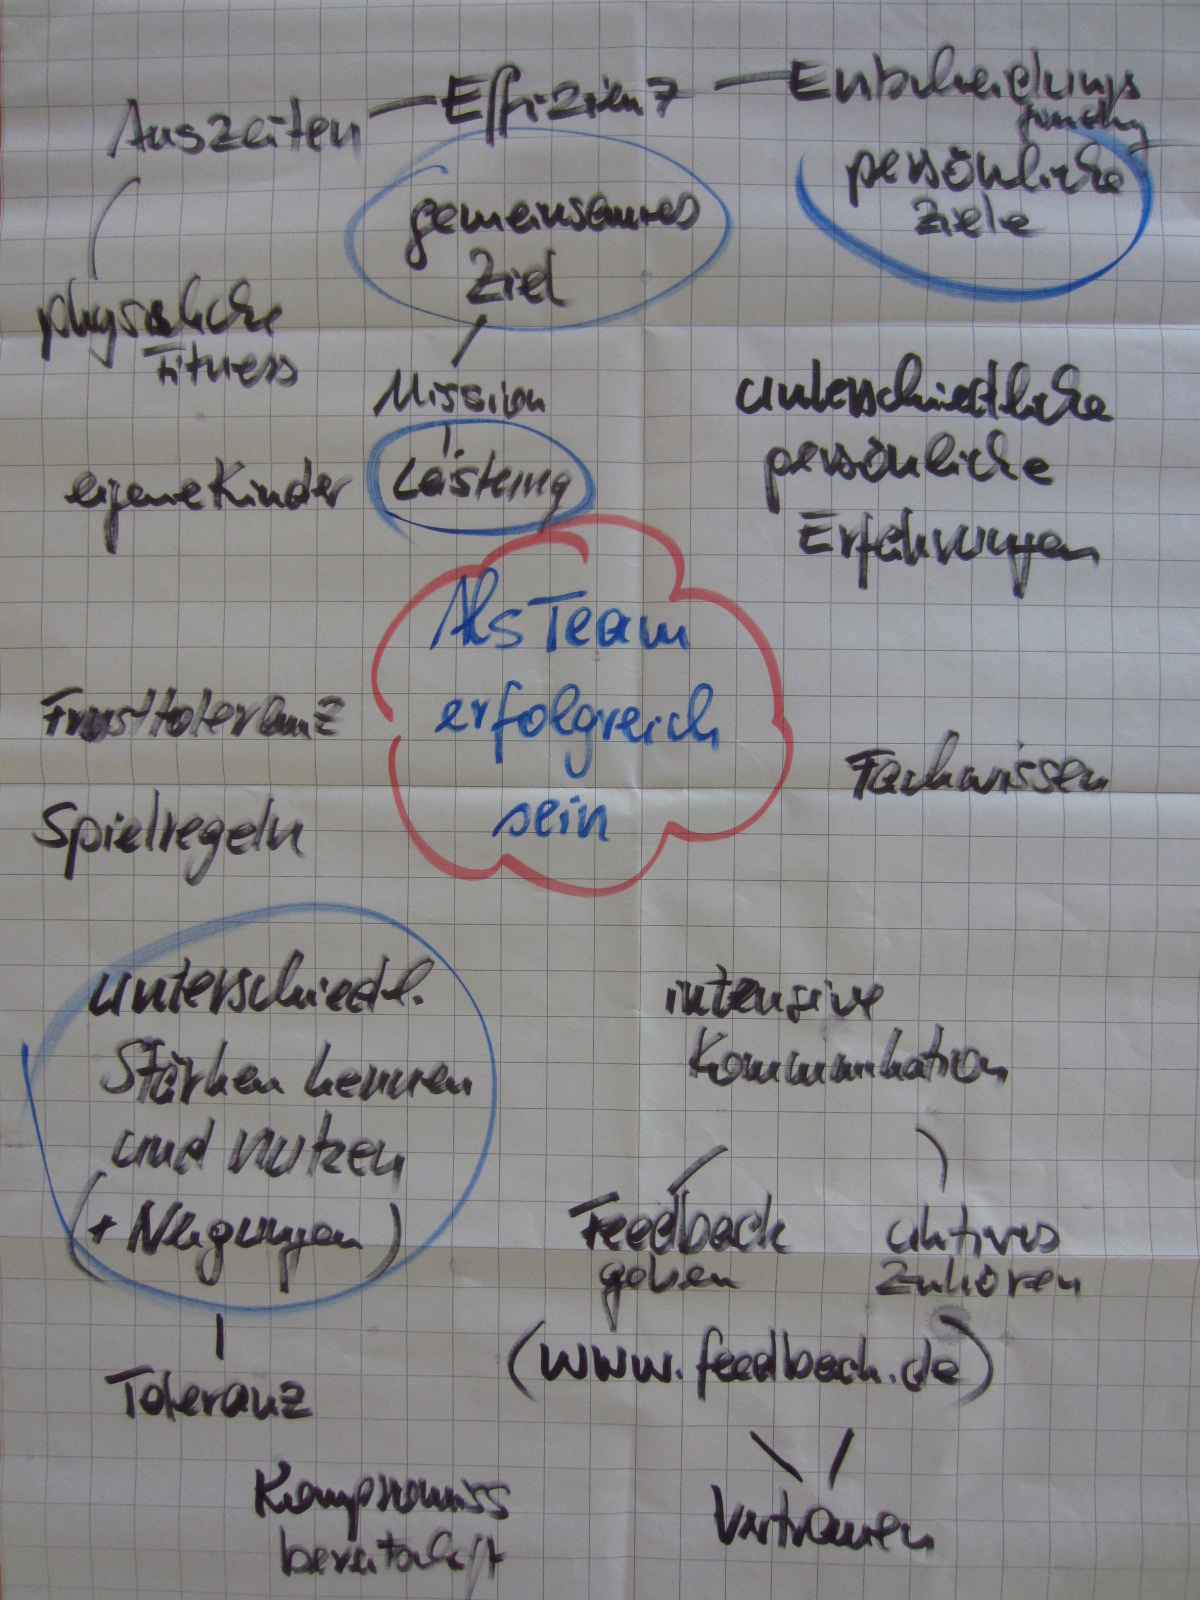 Auszeiten
Effizienz
Entscheidungs
freudig
gemeinsames
Ziel
persönliche
Ziele
physische
Fitness
Mission
Leistung
eigene Kinder
unterschiedliche
persönliche
Erfahrungen
Als Team
erfolgreich
sein
Frusttoleranz
Spielregeln
Fachwissen
unterschiedl.
Stärken kennen
und nutzen
(+ Neigungen)
Toleranz
Kompromiss
bereitschaft
intensive
Kommunikation
Feedback
geben
aktives
Zuhören
(www.feedback.de)
Vertrauen